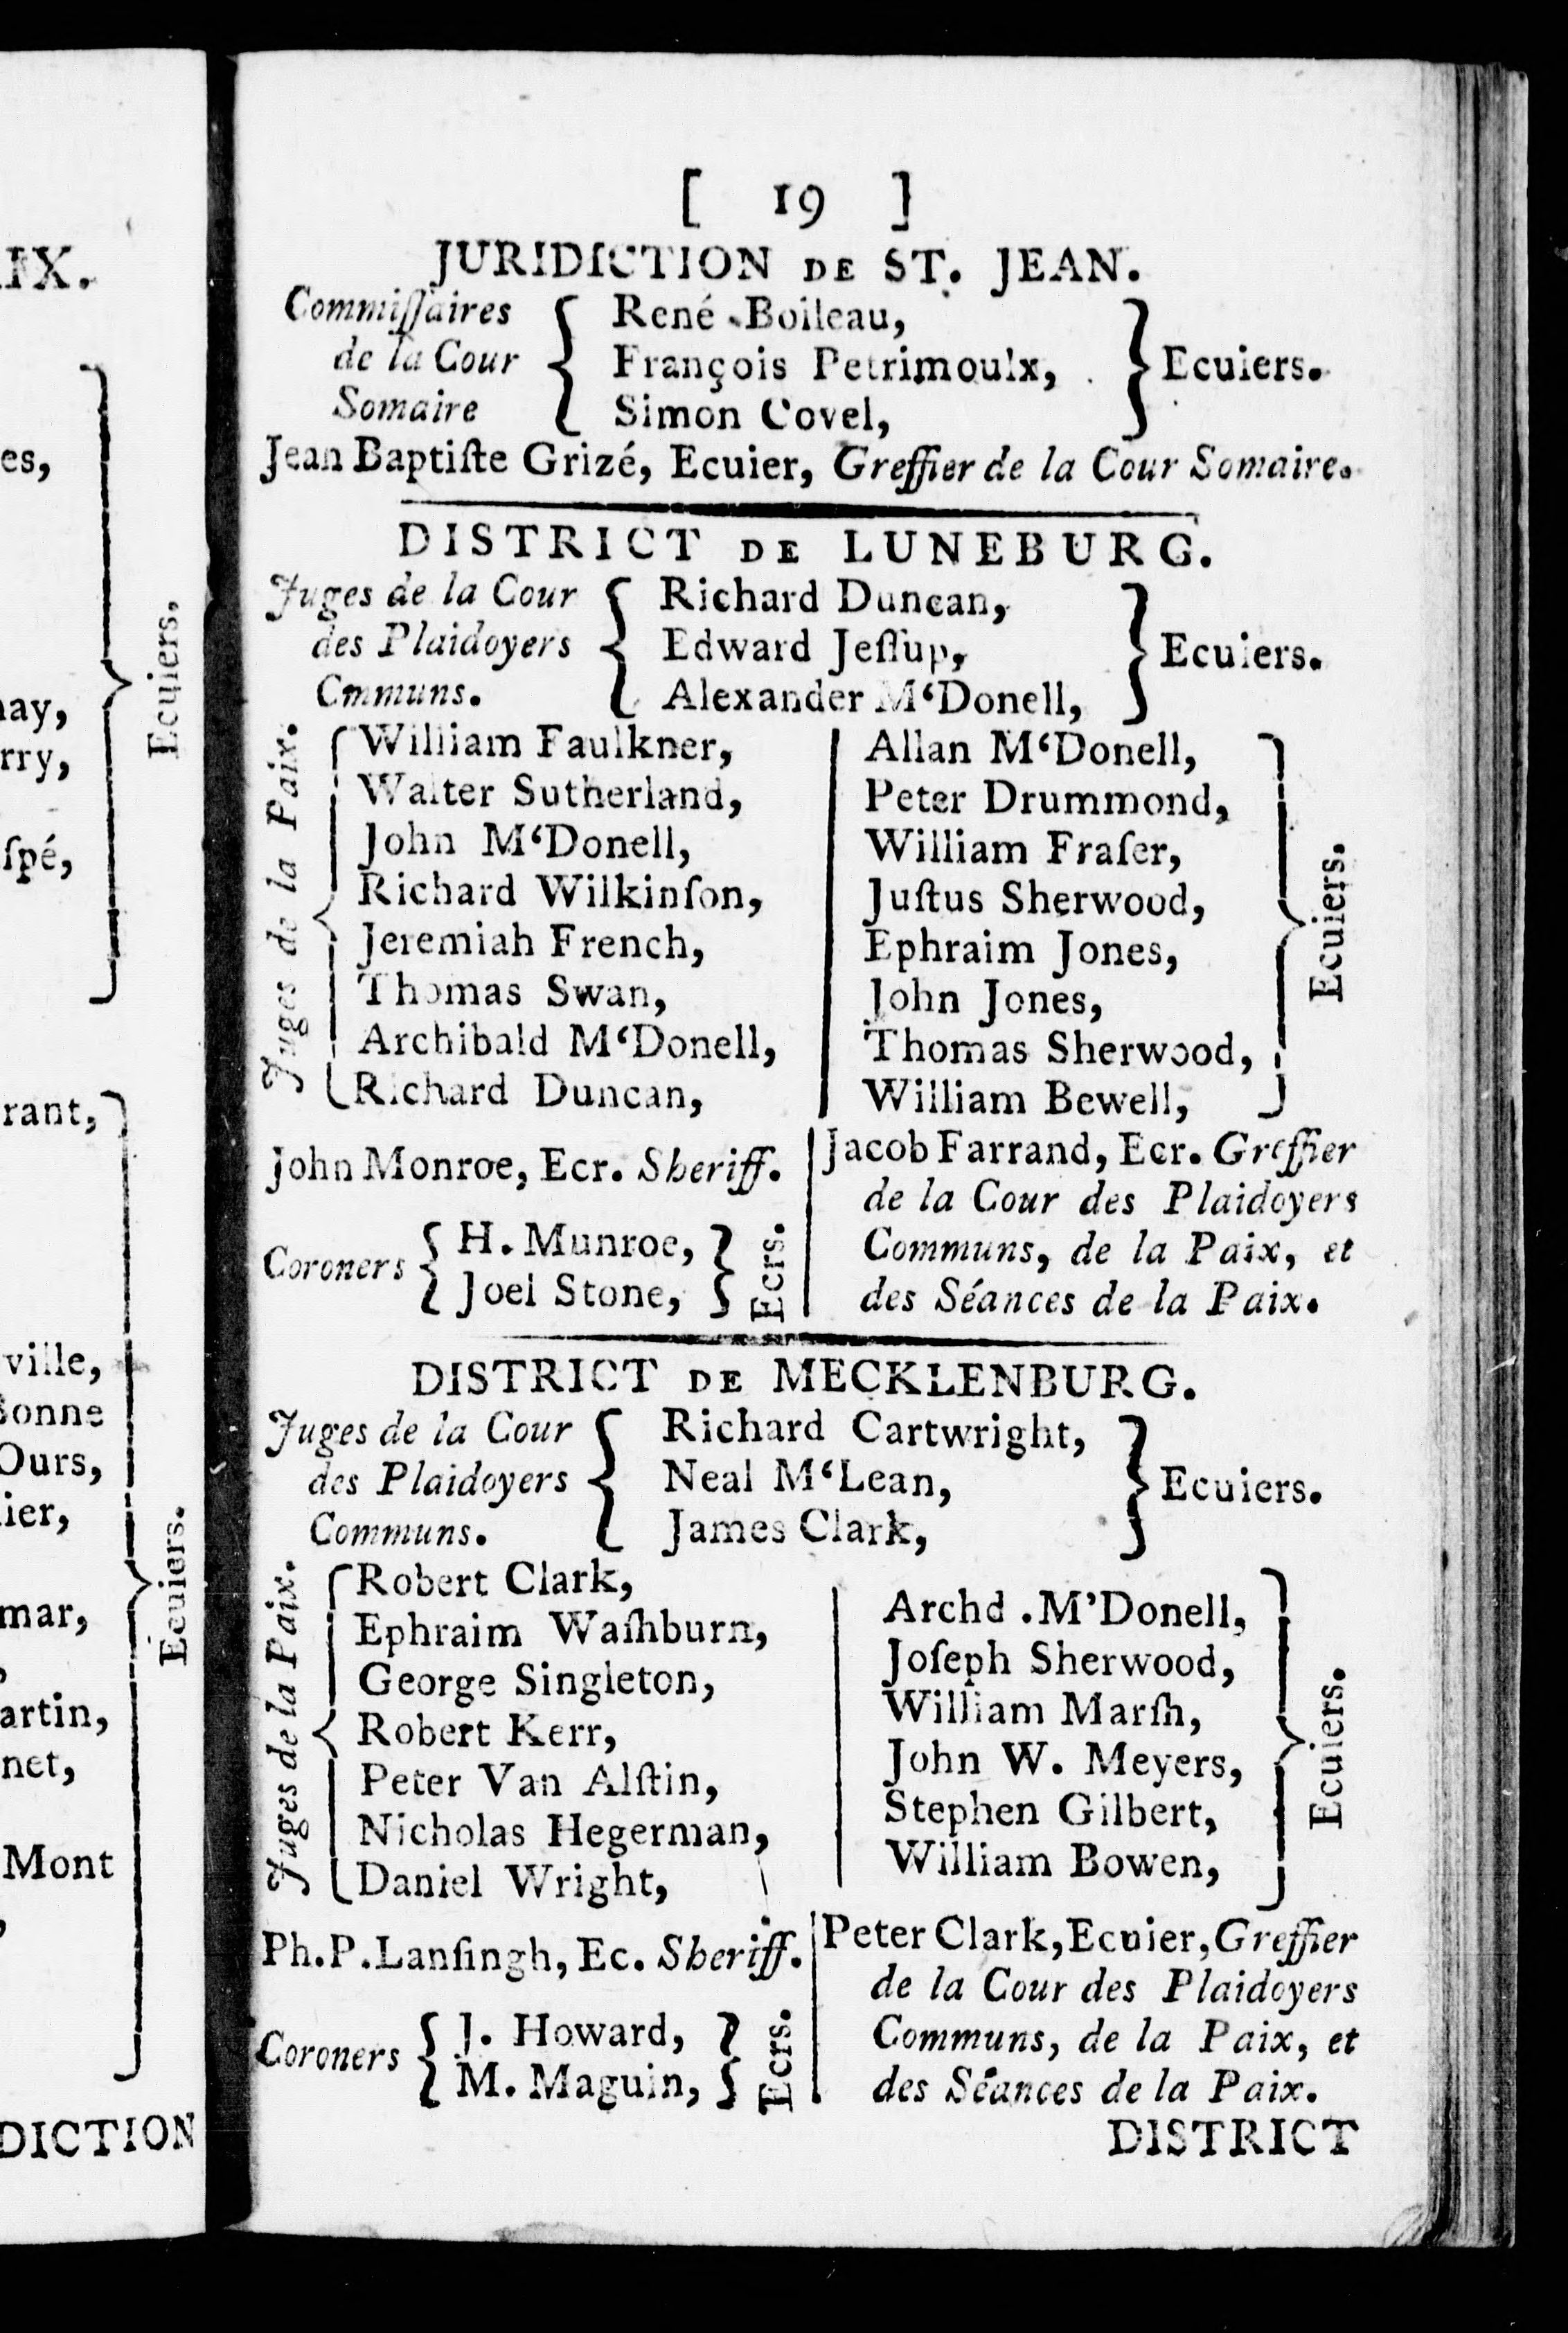 [ 19 ]
JURIDICTION DE ST. JEAN.
Commiſſaires de la Cour Somaire
René Boileau,
François Petrimoulx,
Simon Covel,
Ecuiers.
Jean Baptiſte Grizé, Ecuier, Greffier de la Cour Somaire.
DISTRICT DE LUNEBURG.
Juges de la Cour
des Plaidoyers
Cmmuns.
Richard Duncan,
Edward Jeſſup,
Alexander M‘Donell,
Ecuiers.
Juges de la Paix.
William Faulkner,
Walter Sutherland,
John M‘Donell,
Richard Wilkinſon,
Jeremiah French,
Thomas Swan,
Archibald M‘Donell,
Richard Duncan,
Allan M‘Donell,
Peter Drummond,
William Fraſer,
Juſtus Sherwood,
Ephraim Jones,
John Jones,
Thomas Sherwood,
William Bewell,
Ecuiers.
John Monroe, Ecr. Sheriff.
Coroners
H. Munroe,
Joel Stone,
Ecrs.
Jacob Farrand, Ecr. Greffier
de la Cour des Plaidoyers
Communs, de la Paix, et
des Séances de la Paix.
DISTRICT DE MECKLENBURG.
Juges de la Cour
des Plaidoyers
Communs.
Richard Cartwright,
Neal M‘Lean,
James Clark,
Ecuiers.
Juges de la Paix.
Robert Clark,
Ephraim Waſhburn,
George Singleton,
Robert Kerr,
Peter Van Alſtin,
Nicholas Hegerman,
Daniel Wright,
Archd .M’Donell,
Joſeph Sherwood,
William Marſh,
John W. Meyers,
Stephen Gilbert,
William Bowen,
Ecuiers.
Ph.P.Lanſingh, Ec. Sheriff.
Coroners
J. Howard,
M. Maguin,
Ecrs.
Peter Clark, Ecuier, Greffier
de la Cour des Plaidoyers
Communs, de la Paix, et
des Séances de la Paix.
DISTRICT